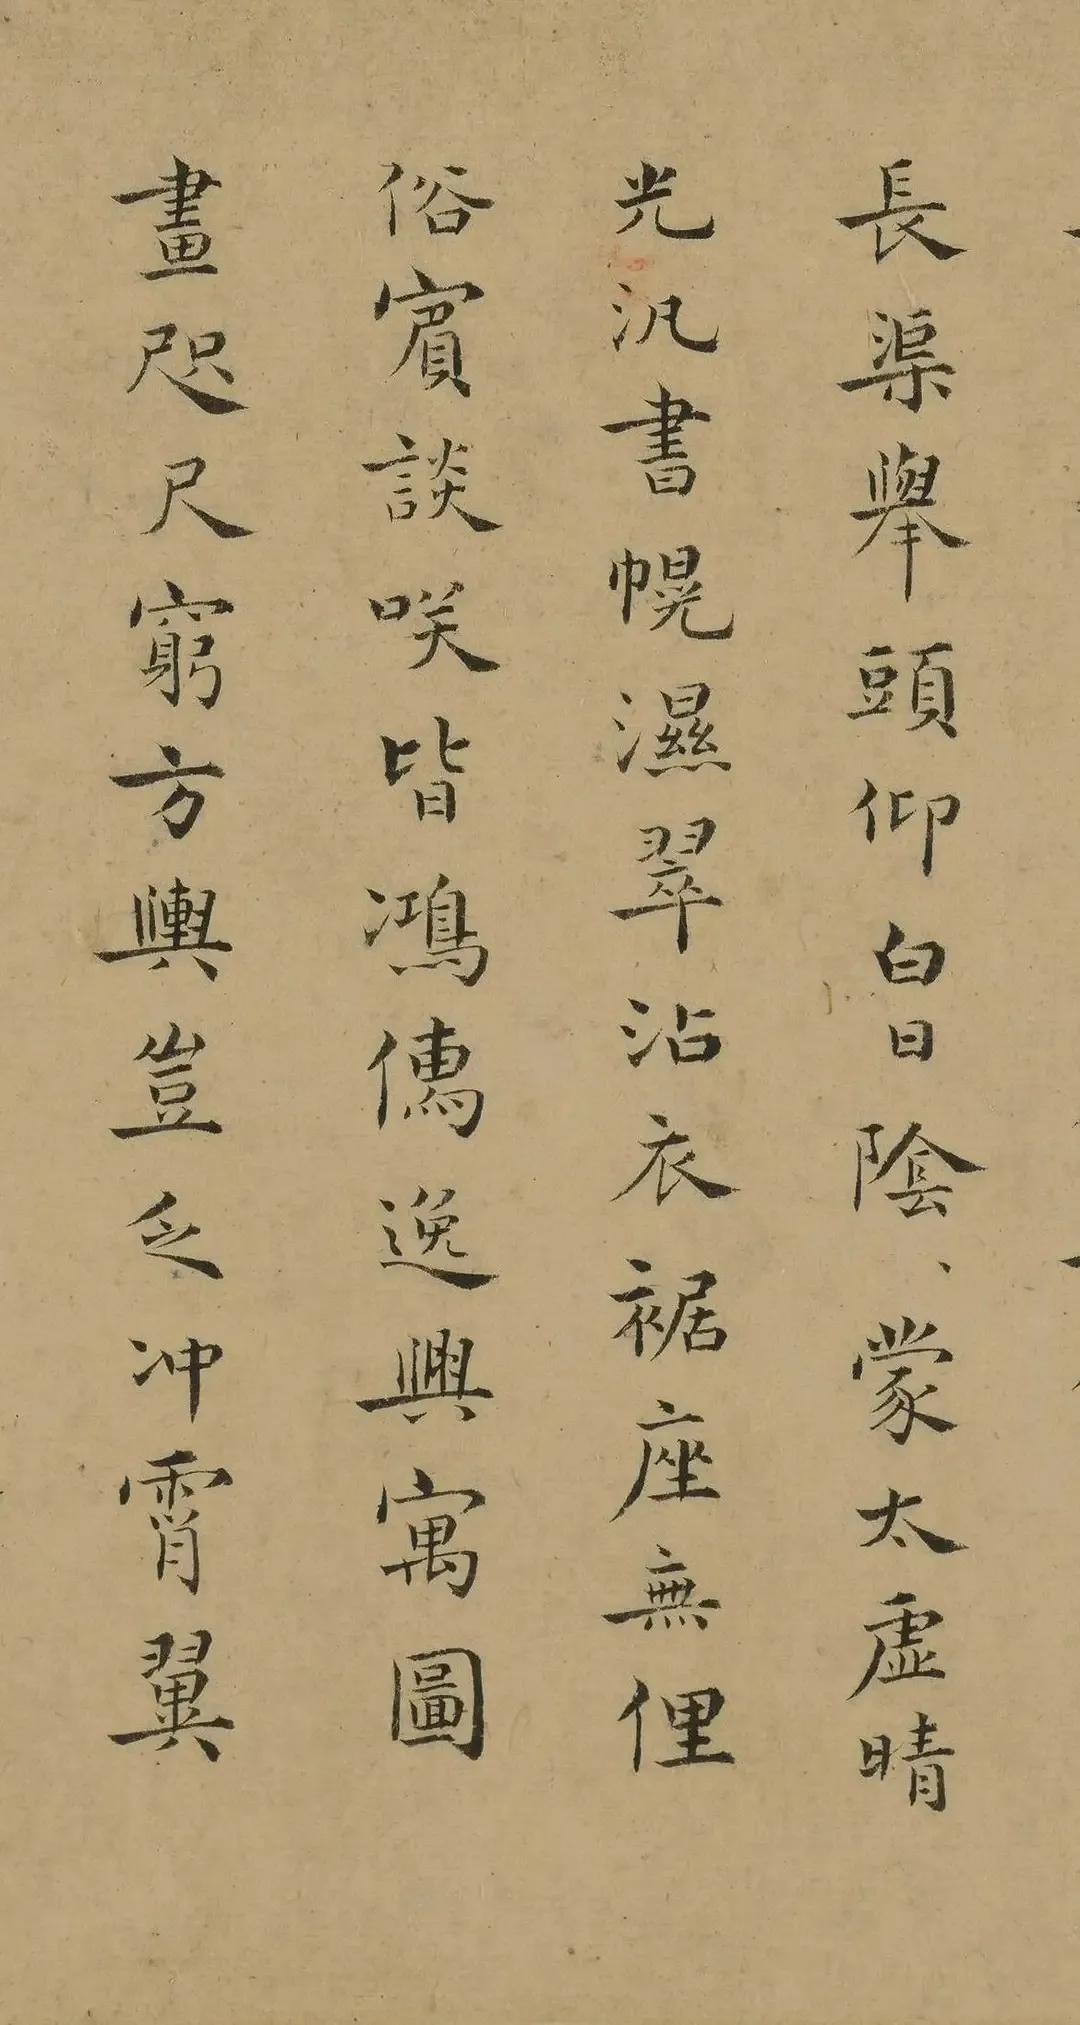 長渠舉頭仰白日陰、蒙太虛晴
光汎書幌濕翠沾衣裾座無俚
俗賓談咲皆鴻儔逸興寓圖
畫咫尺窮方輿豈乏冲霄翼